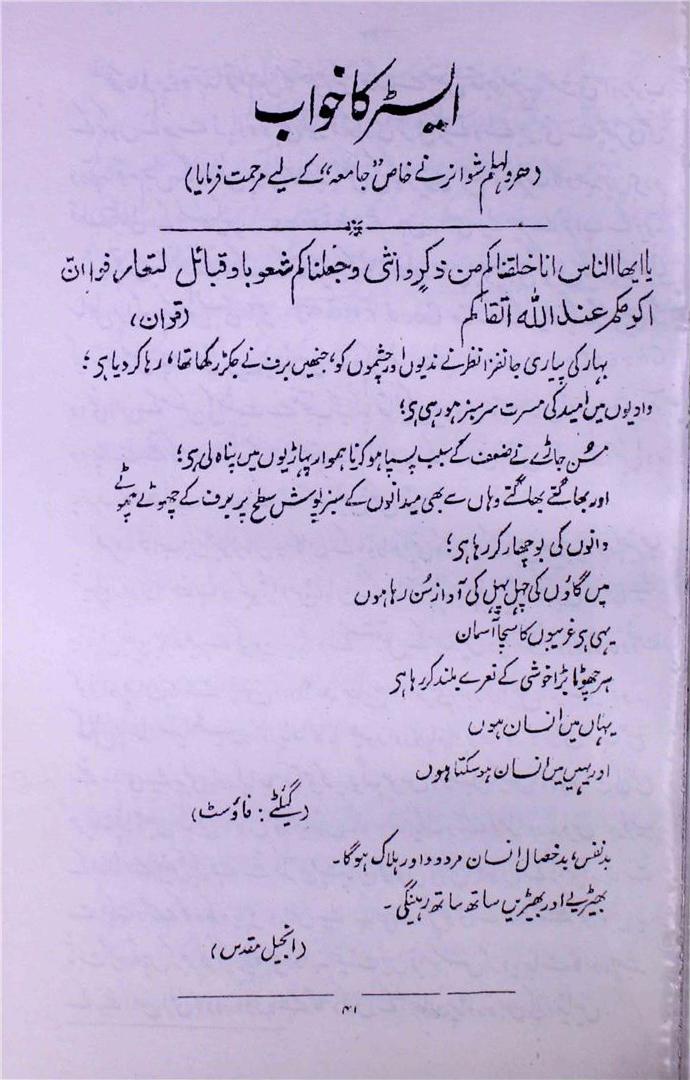 ایسٹر کا خواب
(ھر ولہلم شوانر نے خاص ”جامعہ“ کے لیے مرحمت فرمایا)
یا ایھا الناس انا خلقناکم من ذکرٍ و انثی و جعلناکم شعوبا و قبائل لتعارفوا انّ
اکرمکم عند اللہ اتقاکم (قرآن)
بہار کی پیاری جانفزا نظر نے ندیوں اور چشموں کو، جنھیں برف نے جکڑ رکھا تھا، رہا کر دیا ہی؛
وادیوں میں امید کی مسرت سرسبز ہو رہی ہی؛
مُسن جاڑے نے ضعف کے سبب پسپا ہو کر ناہموار پہاڑیوں میں پناہ لی ہی؛
اور بھاگتے بھاگتے وہاں سے بھی میدانوں کے سبز پوش سطح پر برف کے چھوٹے چھوٹے
دانوں کی بوچھار کر رہا ہی؛
میں گاؤں کی چہل پہل کی آواز سُن رہا ہوں
یہی ہی غریبوں کا سچا آسمان
ہر چھوٹا بڑا خوشی کے نعرے بلند کر رہا ہی
یہاں میں انسان ہوں
اور یہیں میں انسان ہو سکتا ہوں
(گیٹے: فاؤسٹ)
بد نفس، بد خصال انسان مردود اور ہلاک ہوگا۔
بھیڑیے اور بھیڑیں ساتھ ساتھ رہینگی۔
(انجیل مقدس)
۴۱